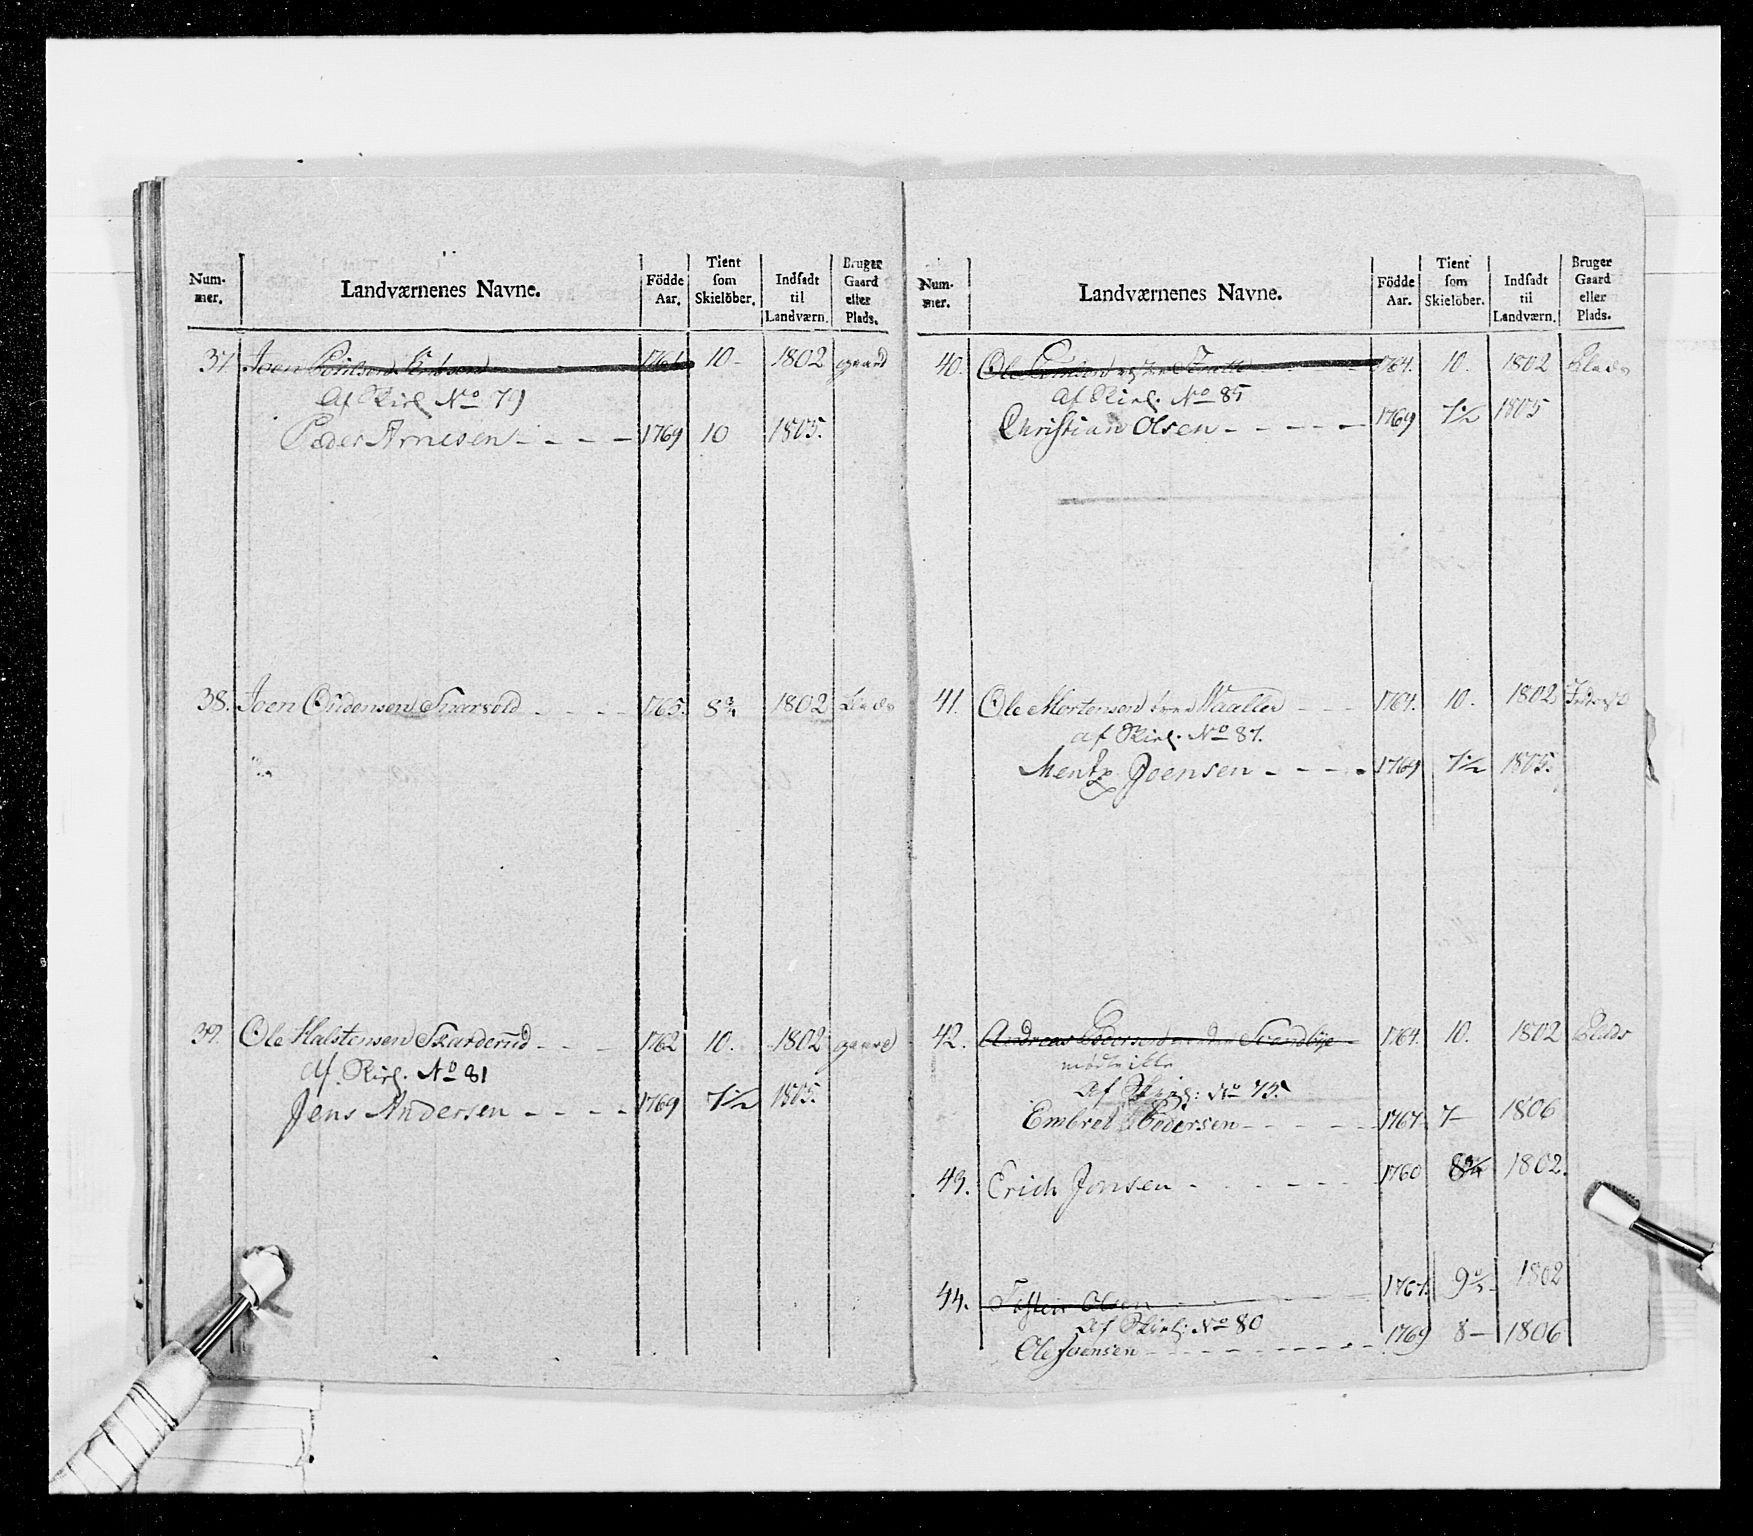 Num-mer. Landværnenes Navne. Födde Aar. Tient som Skielöber. Indsadt til Landværn. Bruger Gaard eller Plads.
37. Joen 1761 10- 1802 gaard
Af Skirl No 79
Peder Arnesen - - - - 1769 10 1805.
38. Joen Oudensen - - - - 1765. 8 3/4 1802 Plads
39. Ole Halstensen Skarderud - - - 1762 10. 1802 gaard
af Skirl. No 81
Jens Andersen - - - - 1769 7 1/2 1805.
Num-mer. Landværnenes Navne. Födde Aar. Tient som Skielöber. Indsadt til Landværn. Bruger Gaard eller Plads.
40. Ole 1764. 10. 1802 Plads
af Skirl. No 85
Christian Olsen - - - - - 1769 7 1/2 1805
41. Ole Mortensen - - - 1764. 10. 1802
af Skirl. No 87.
Mentz Joensen - - - - 1769 7 1/2 1805.
42. Andreas 1764. 10. 1802 Plads
mödte ikke
af No 75.
Embret Pedersen - - - - - 1767. 7- 1806
43. Erich Jonsen - - - - - - 1760 8 3/4 1802.
44. Olsen 1767. 9 1802
af Skirl: No 80
Ole Joensen - - - - - - - - - 1769 8- 1806